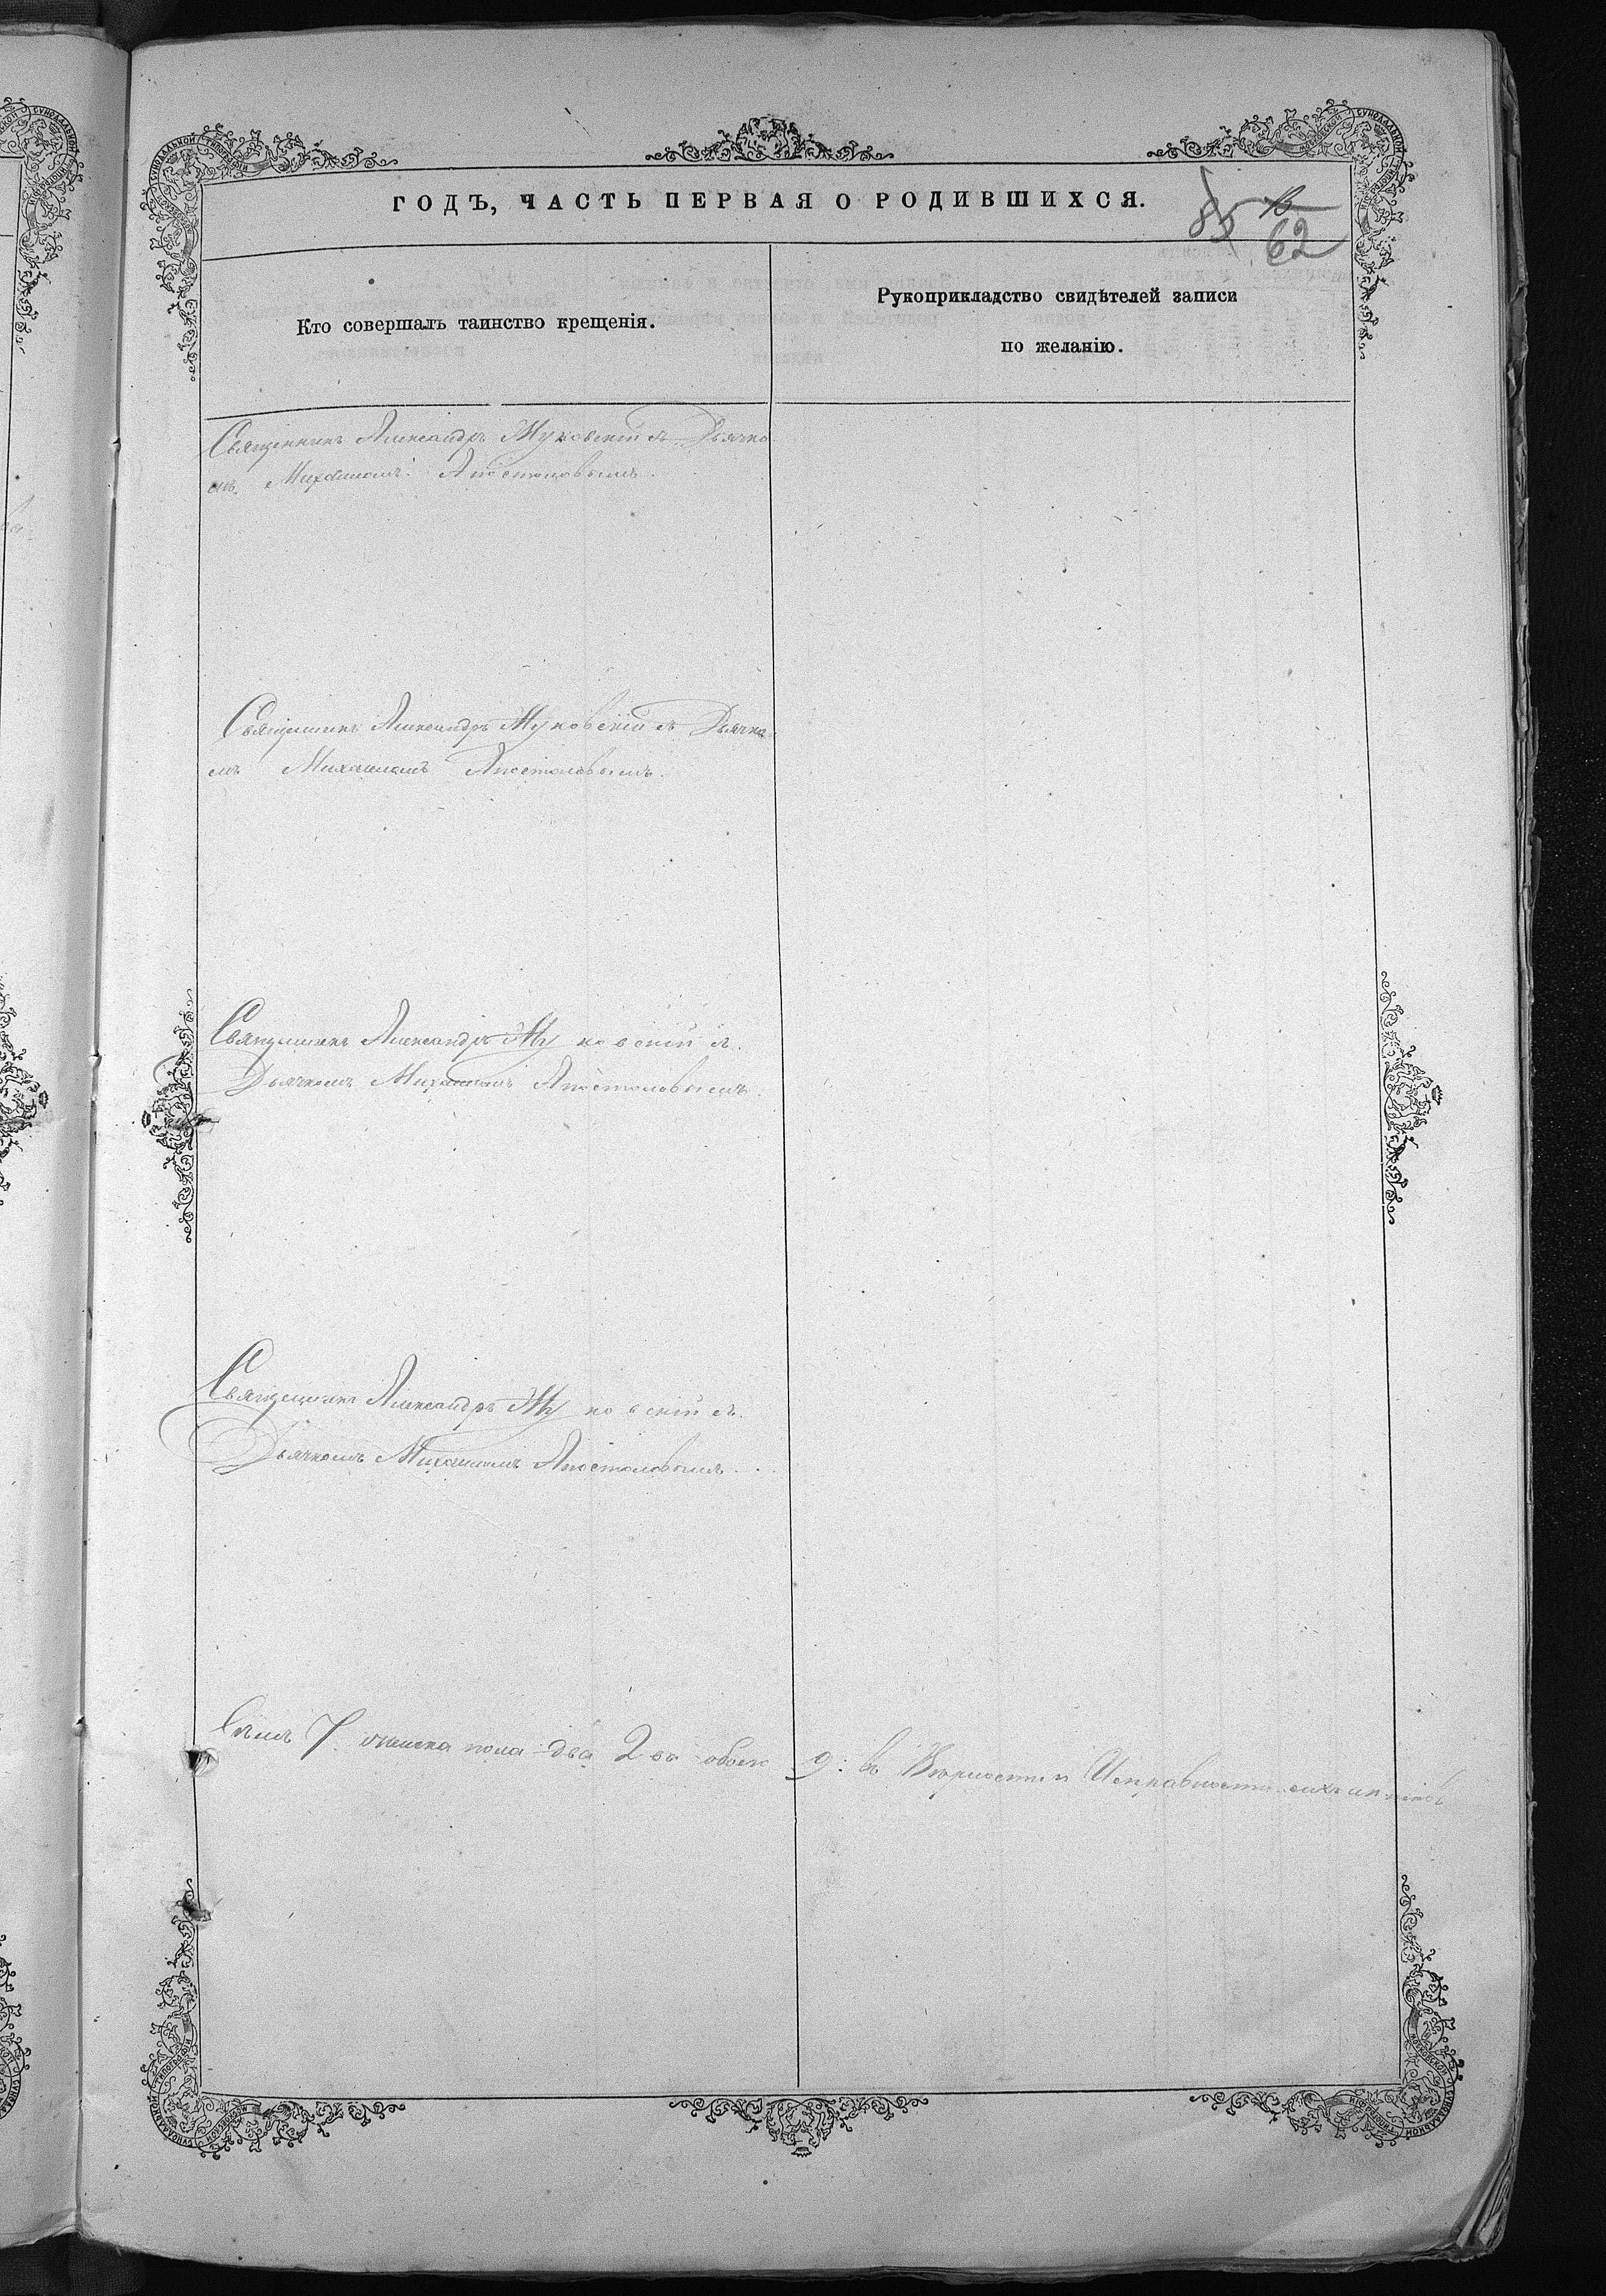 ГОДЪ, ЧАСТЬ ПЕРВАЯ О РОДИВШИХСЯ.
85 62
Кто совершалъ таинство крещенія.
Рукоприкладство свидѣтелей записи
по желанію.
Священникъ Александръ Жуковскій съ Дьячко
мъ Михаиломъ Апостоловымъ.
Священникъ Александръ Жуковскій съ Дьячко
мъ Михаиломъ Апостоловымъ.
Священникъ Александръ Жуковскій съ
Дьячкомъ Михаиломъ Апостоловымъ.
Священникъ Александръ Жуковскій съ
Дьячкомъ Михаиломъ Апостоловымъ.
7. женска пола два 2 обоего 9: въ Вѣрности и Исправности сихъ